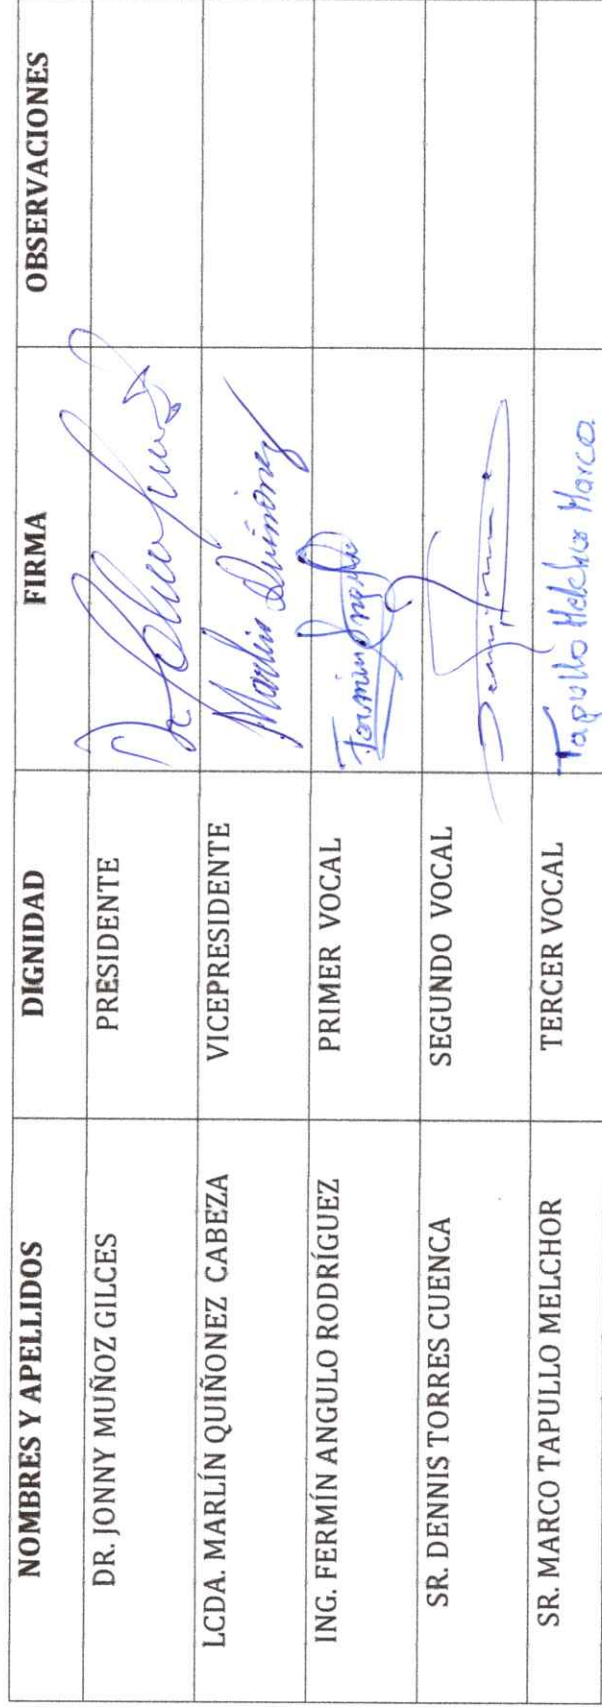 NOMBRES Y APELLIDOS DIGNIDAD FIRMA OBSERVACIONES
DR. JONNY MUÑOZ GILCES PRESIDENTE Dr
LCDA. MARLÍN QUIÑONEZ CABEZA VICEPRESIDENTE Marlin Quiñonez
ING. FERMÍN ANGULO RODRÍGUEZ PRIMER VOCAL Fermin Angulo
SR. DENNIS TORRES CUENCA SEGUNDO VOCAL
SR. MARCO TAPULLO MELCHOR TERCER VOCAL Tapullo Melchor Marco